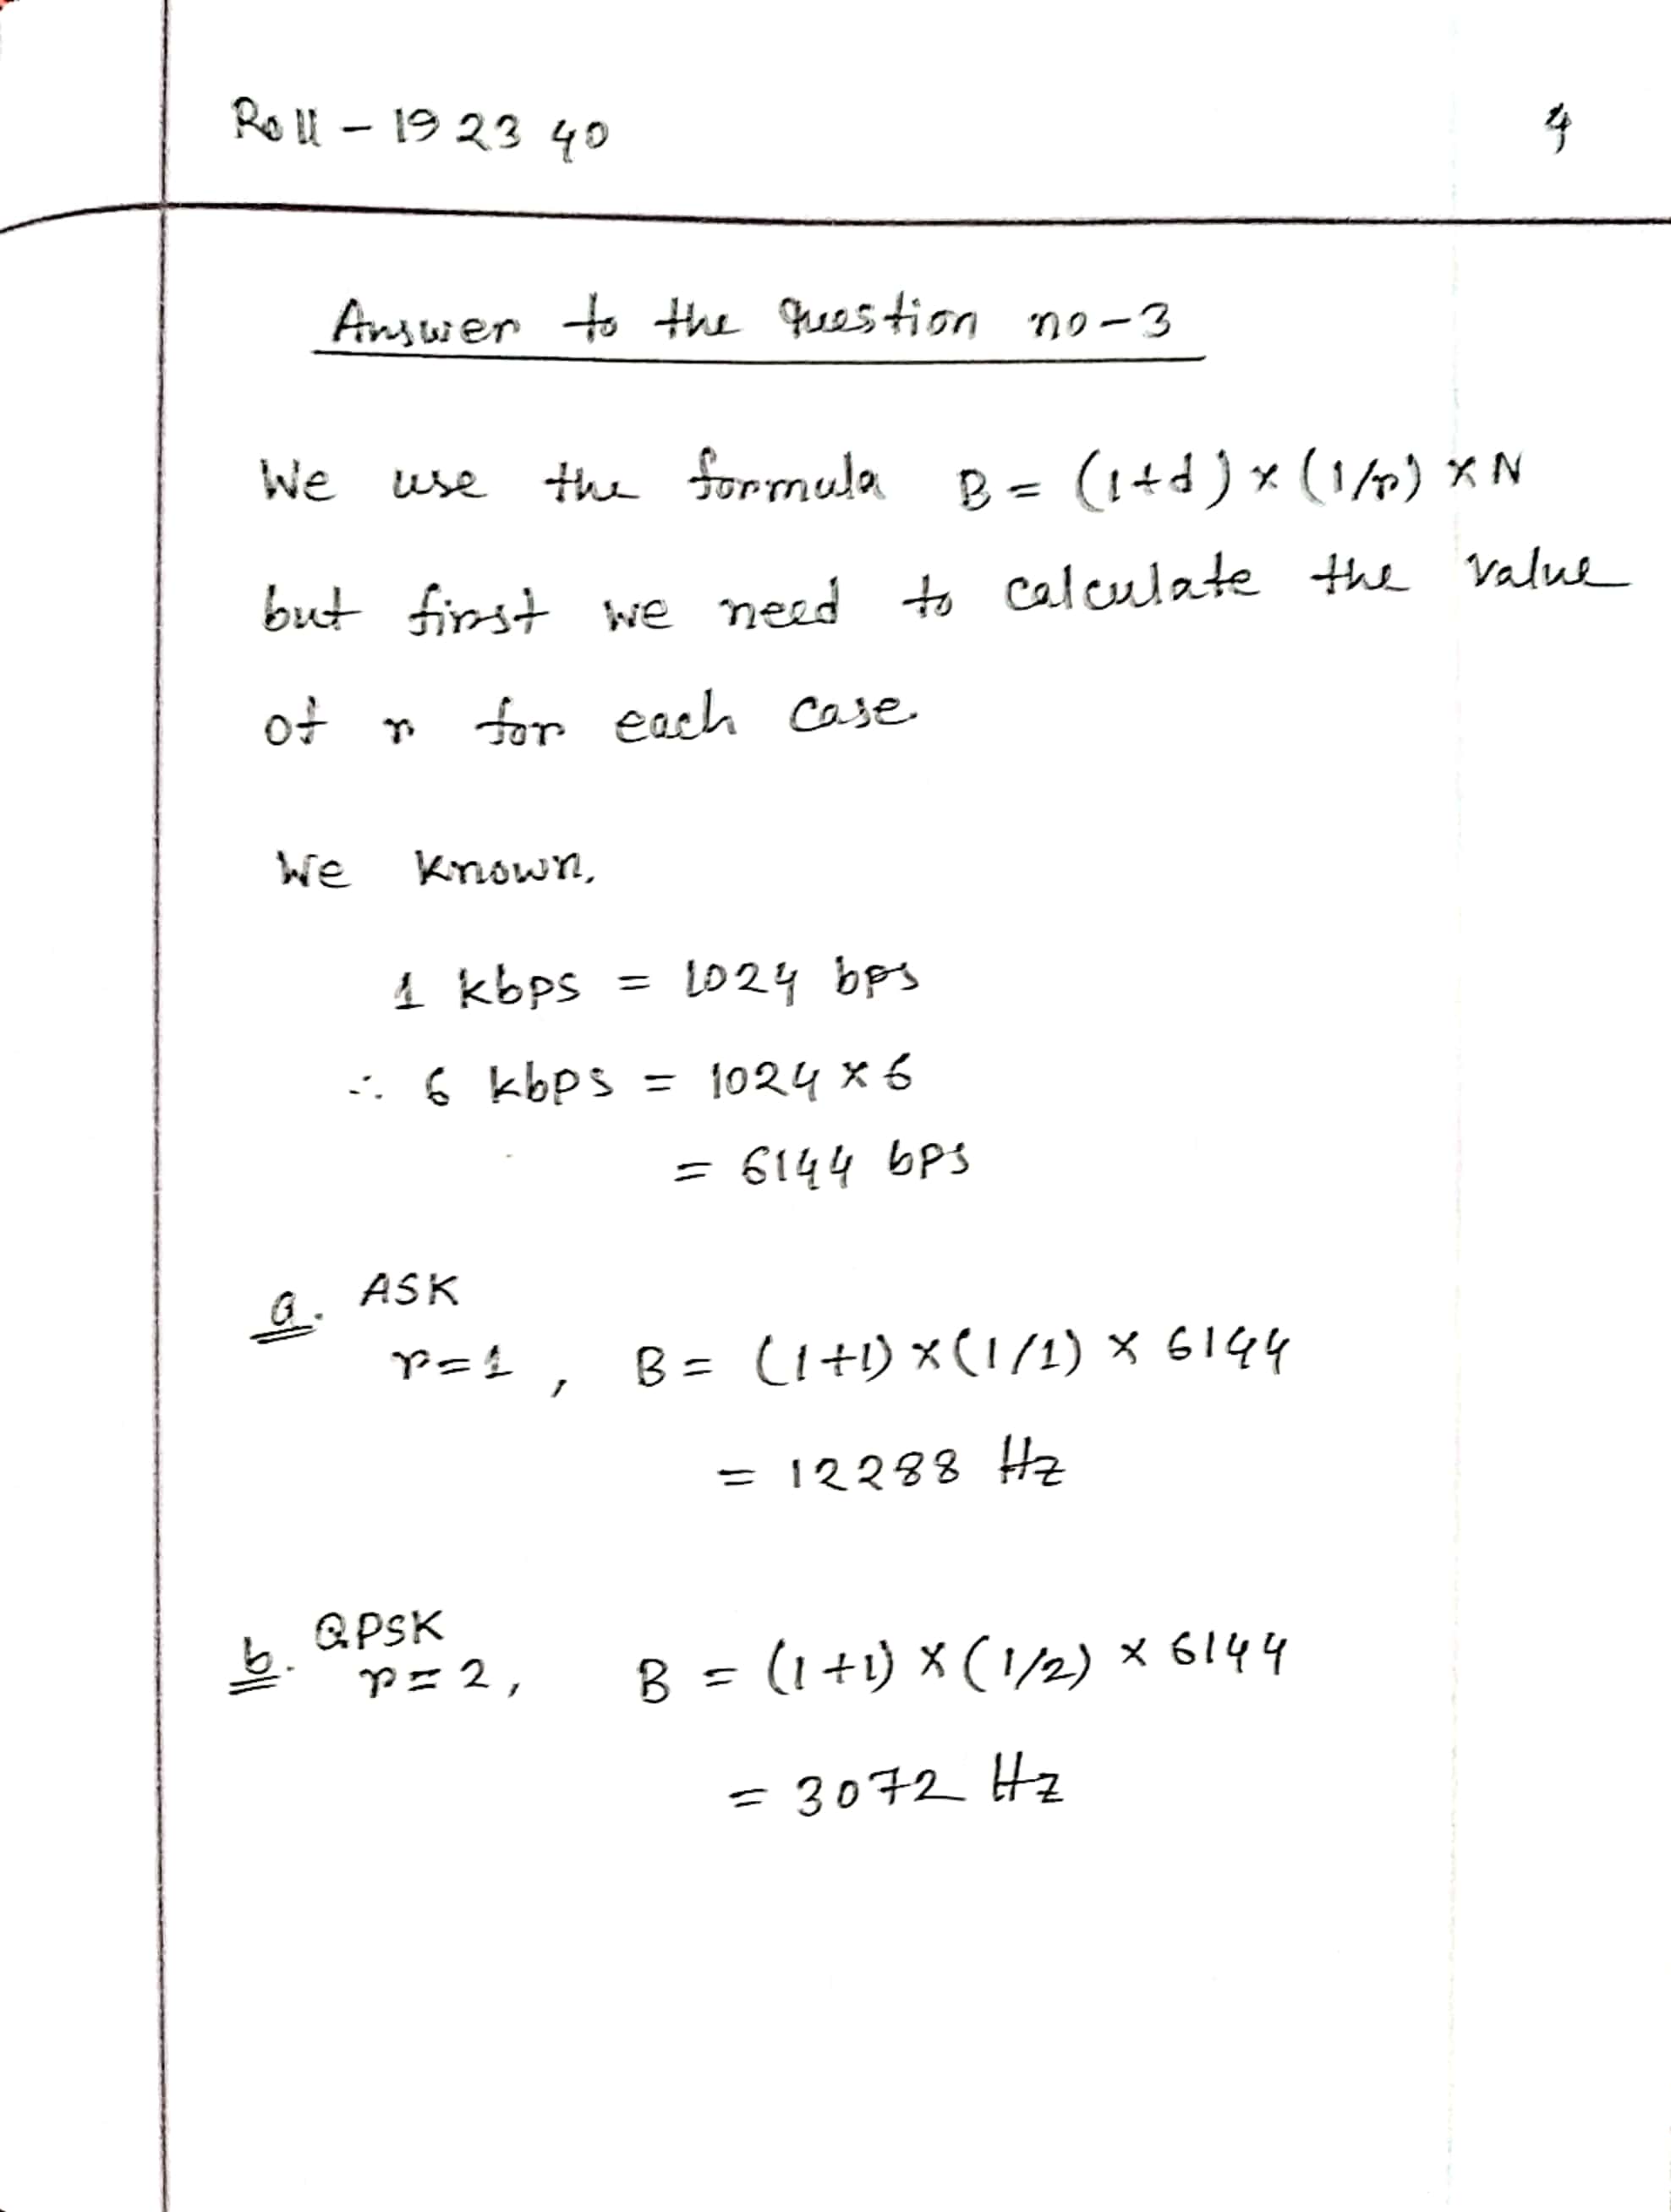 Roll - 192340
4
Answer to the question no-3
We use the formula B = (1+d) × (1/r) × N
but first we need to calculate the value
of r for each case.
We known,
1 kbps = 1024 bps
∴ 6 kbps = 1024 × 6
= 6144 bps
a. ASK
r=1, B = (1+1) × (1/1) × 6144
= 12288 Hz
b. QPSK
r=2, B = (1+1) × (1/2) × 6144
= 3072 Hz